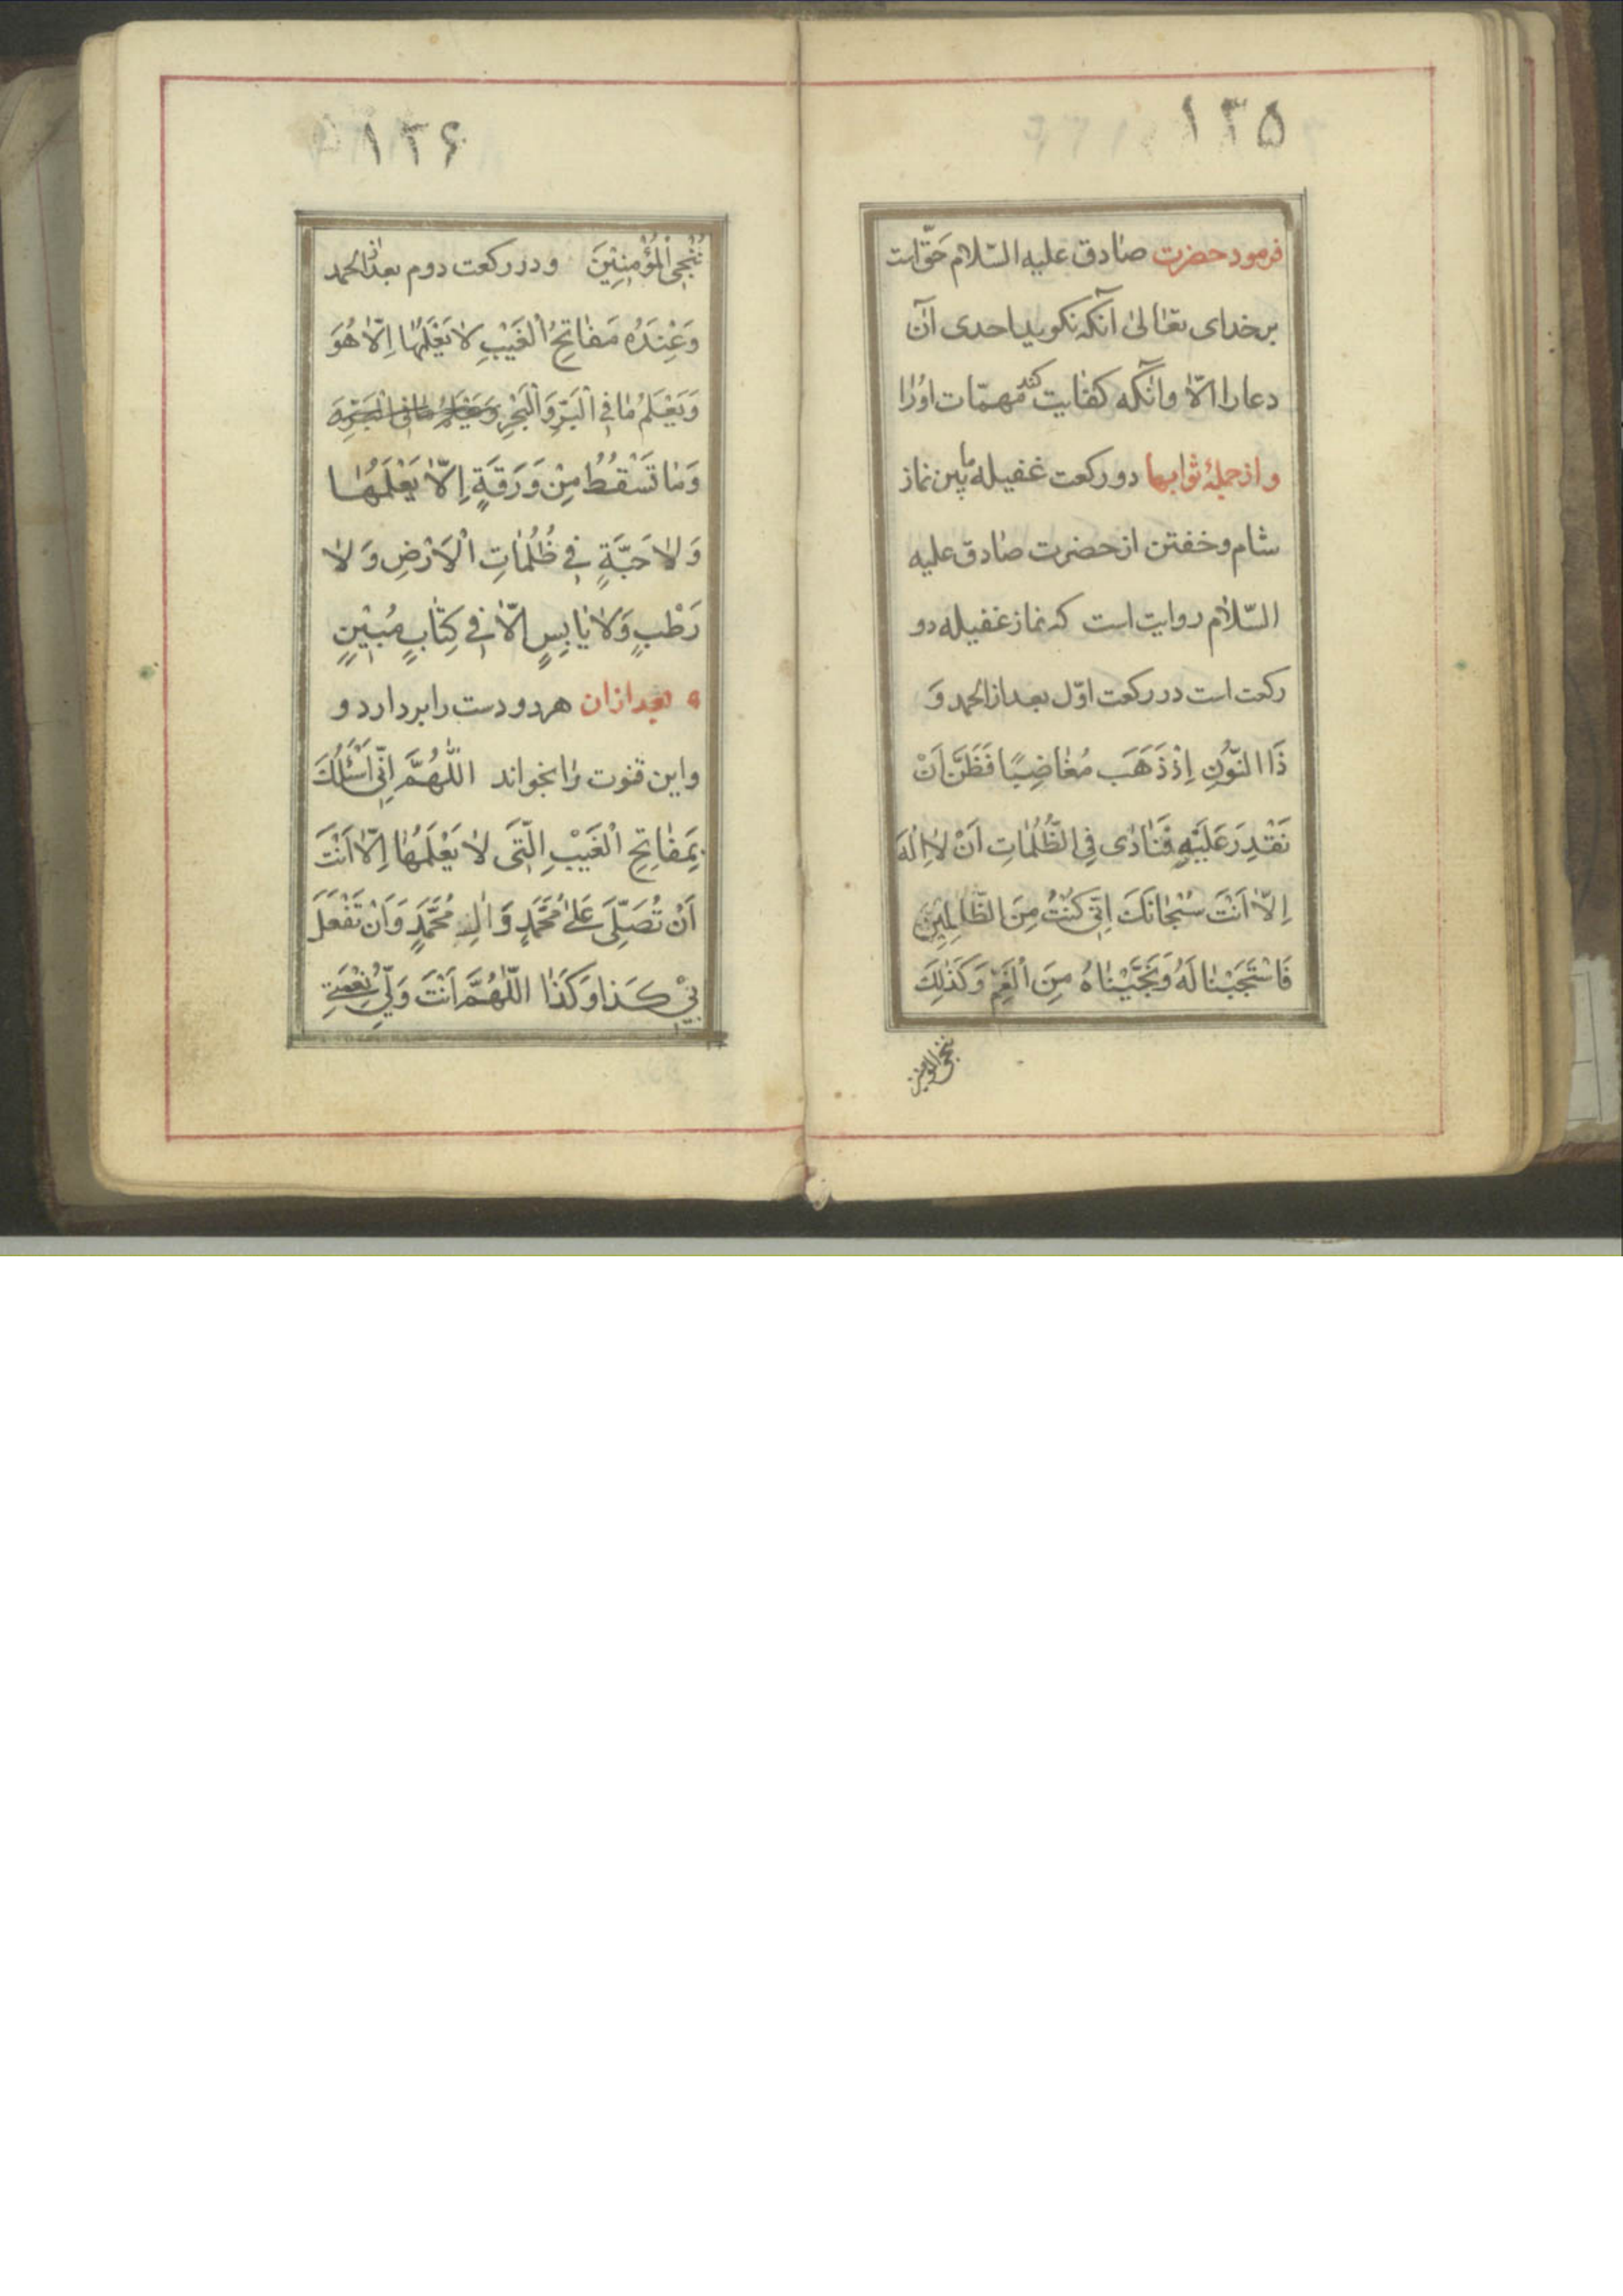 ۱۳۵
فرمود حضرت صادق علیه السّلام حقّ است
بر خدای تعالیٰ آنکه نگوید احدی آن
دعا را الّا وانکه کفایت کند مهمّات اورا
و از جملهٔ ثوابها دو رکعت غفیله مابین نماز
شام و خفتن از حضرت صادق علیه
السّلام روایت است که نماز غفیله دو
رکعت است در رکعت اوّل بعد از الحمد وَ
ذَا النُّونِ اِذْ ذَهَبَ مُغاضِبًا فَظَنَّ اَنْ
نَقْدِرَ عَلَیْهِ فَنَادٰی فِی الظُّلُمٰاتِ اَنْ لٰا اِلٰهَ
اِلّٰا اَنْتَ سُبْحٰانَکَ اِنّی کُنْتُ مِنَ الظّٰلِمِینَ
فَاسْتَجَبْنٰا لَهُ وَنَجَّیْنٰاهُ مِنَ الْغَمِّ وَکَذٰلِکَ
ننجی المؤمنین
۱۳۶
نُنْجِی الْمُؤْمِنِیْنَ و در رکعت دوم بعد از الحمد
وَعِنْدَهُ مَفٰاتِحُ الْغَیْبِ لٰا یَعْلَمُهٰا اِلّٰا هُوَ
وَیَعْلَمُ مٰا فِی الْبَرِّ وَالْبَحْرِ
وَمٰا تَسْقُطُ مِنْ وَرَقَةٍ اِلّٰا یَعْلَمُهٰا
وَلٰا حَبَّةٍ فِی ظُلُمٰاتِ الْاَرْضِ وَلٰا
رَطْبٍ وَلٰا یٰابِسٍ اِلّٰا فِی کِتٰابٍ مُبِیْنٍ
بعد ازان هر دو دست را بردارد و
و این قنوت را بخواند اللّٰهُمَّ اِنّی اَسْئَلُکَ
بِمَفٰاتِحِ الْغَیْبِ الَّتی لٰا یَعْلَمُهٰا اِلّٰا اَنْتَ
اَنْ تُصَلِّیَ عَلیٰ مُحَمَّدٍ وَ اٰلِ مُحَمَّدٍ وَاَنْ تَفْعَلَ
بیْ کَذٰا وَکَذٰا اللّٰهُمَّ اَنْتَ وَلِیُّ نِعْمَتی